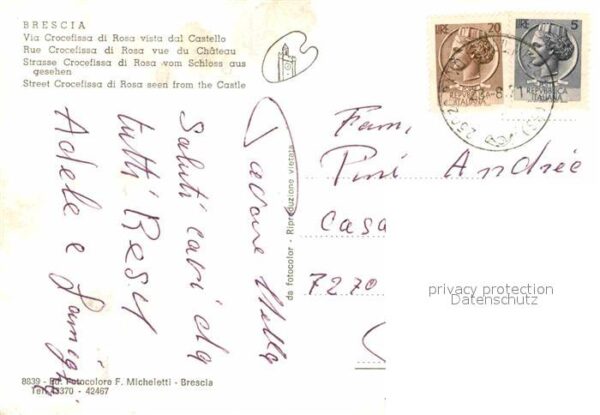 BRESCIA
Via Crocefissa di Rosa vista dal Castello
Rue Crocefissa di Rosa vue du Château
Strasse Crocefissa di Rosa vom Schloss aus
gesehen
Street Crocefissa di Rosa seen from the Castle
LIRE 20
REPUBBLICA
ITALIANA
LIRE 5
REPUBBLICA
ITALIANA
Fam,
Andrée
Casa
7270
privacy protection
Datenschutz
Saluti cari da
tutti
Adele e
da fotocolor - Riproduzione vietata
8839 - Ed. Fotocolore F. Micheletti - Brescia
Tel. 43370 - 42467